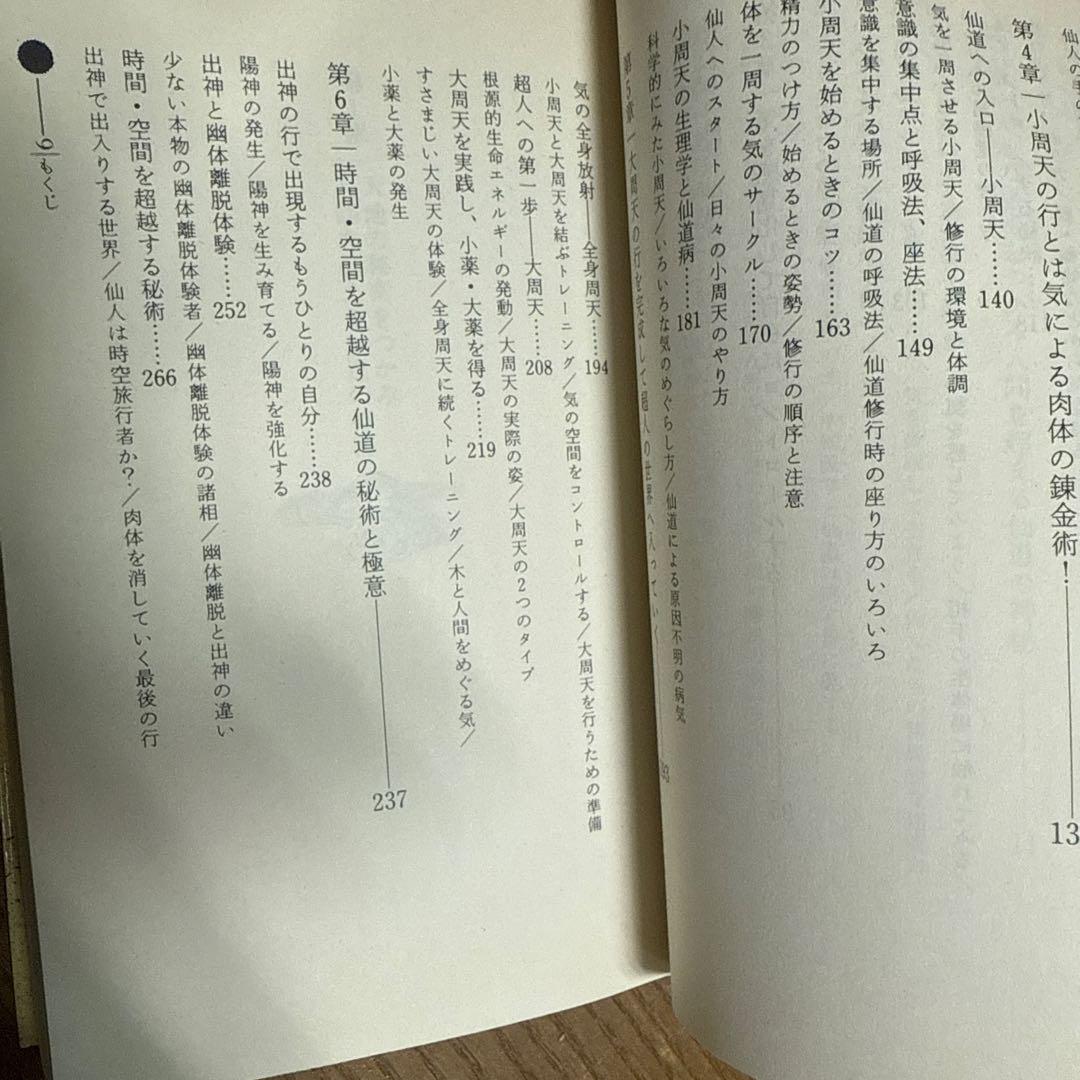 仙人の
第4章―小周天の行とは気による肉体の錬金術！――13
仙道への入口――小周天……140
気を一周させる小周天/修行の環境と体調
意識の集中点と呼吸法、座法……149
意識を集中する場所/仙道の呼吸法/仙道修行時の座り方のいろいろ
小周天を始めるときのコツ……163
精力のつけ方/始めるときの姿勢/修行の順序と注意
体を一周する気のサークル……170
仙人へのスタート/日々の小周天のやり方
小周天の生理学と仙道病……181
科学的にみた小周天/いろいろな気のめぐらし方/仙道による原因不明の病気
第5章―大周天の行を完成して超人の世界へ入っていく
気の全身放射――全身周天……194
小周天と大周天を結ぶトレーニング/気の空間をコントロールする/大周天を行うための準備
超人への第一歩――大周天……208
根源的生命エネルギーの発動/大周天の実際の姿/大周天の2つのタイプ
大周天を実践し、小薬・大薬を得る……219
すさまじい大周天の体験/全身周天に続くトレーニング/木と人間をめぐる気/
小薬と大薬の発生
第6章―時間・空間を超越する仙道の秘術と極意――237
出神の行で出現するもうひとりの自分……238
陽神の発生/陽神を生み育てる/陽神を強化する
出神と幽体離脱体験……252
少ない本物の幽体離脱体験者/幽体離脱体験の諸相/幽体離脱と出神の違い
時間・空間を超越する秘術……266
出神で出入りする世界/仙人は時空旅行者か？/肉体を消していく最後の行
9もくじ